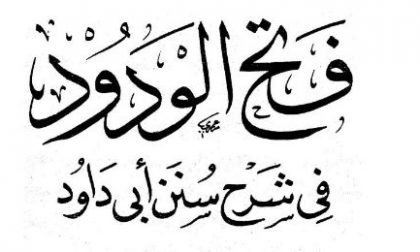 فَتح الوَدُود
فِي شَرح سُنَن أبى دَاوُد